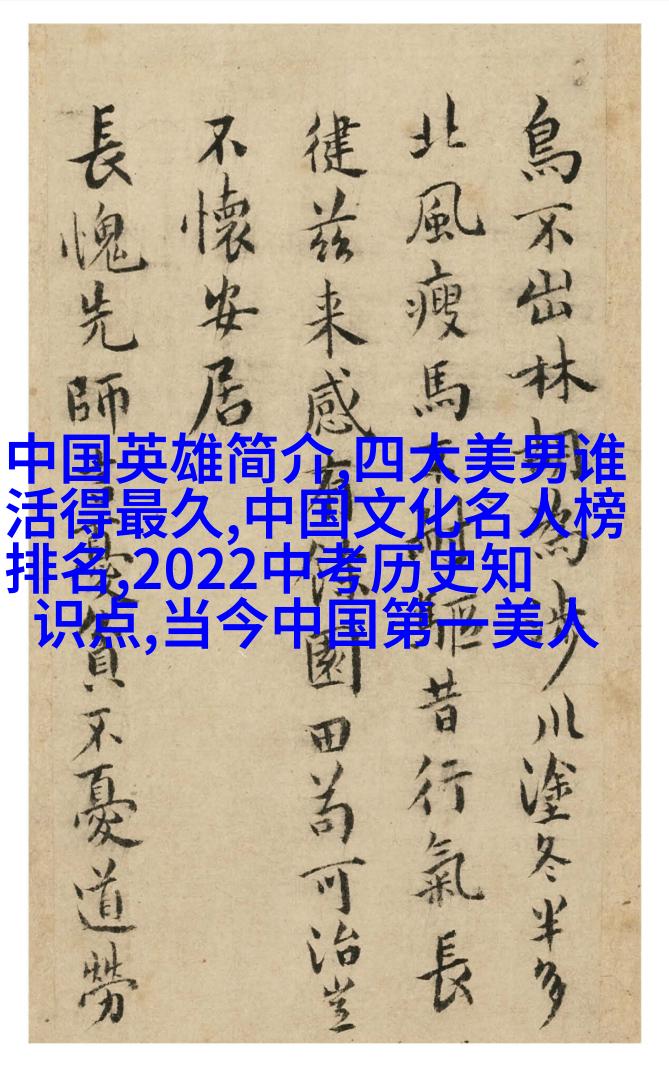 鳥不出林胡為涉川塗冬半多
北風瘦馬不耐驅昔行氣長
健兹来感餘園田苟可治豈
不懷安居
長愧先師憂貧不憂道勞
中国英雄简介,四大美男谁
活得最久,中国文化名人榜
排名,2022中考历史知
识点,当今中国第一美人